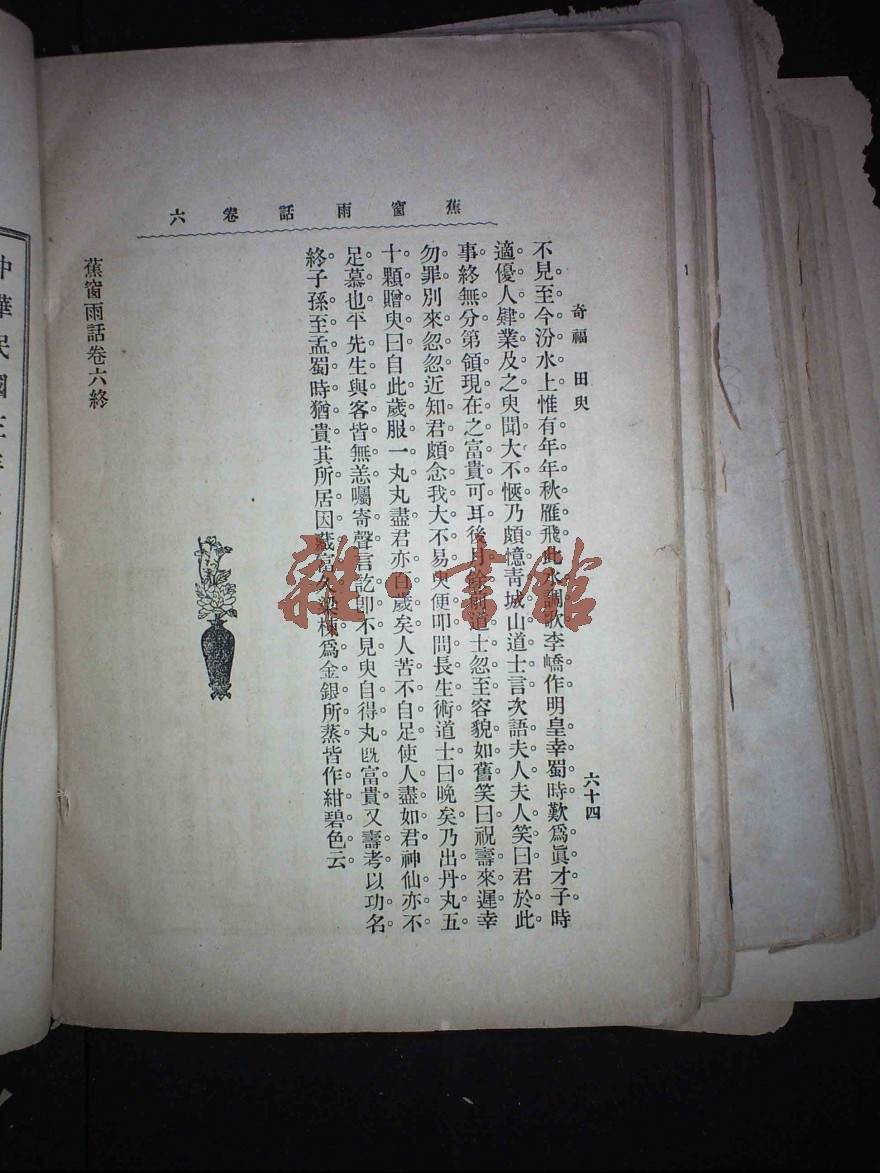 蕉窗雨話卷六
奇福 田臾
六十四
不見至今汾水上惟有年年秋雁飛此水調歌李嶠作明皇幸蜀時歎爲眞才子時
適優人肄業及之臾聞大不愜乃頗憶靑城山道士言次語夫人夫人笑曰君於此
事終無分第領現在之富貴可耳後月道士忽至容貌如舊笑曰祝壽來遲幸
勿罪別來忽忽近知君頗念我大不易臾便叩問長生術道士曰晚矣乃出丹丸五
十顆贈臾曰自此歲服一丸丸盡君亦百歲矣人苦不自足使人盡如君神仙亦不
足慕也平先生與客皆無恙囑寄聲言訖卽不見臾自得丸旣富貴又壽考以功名
終子孫至孟蜀時猶貴其所居因藏富久梁棟爲金銀所蒸皆作紺碧色云
蕉窗雨話卷六終
雜·書館
中華民國